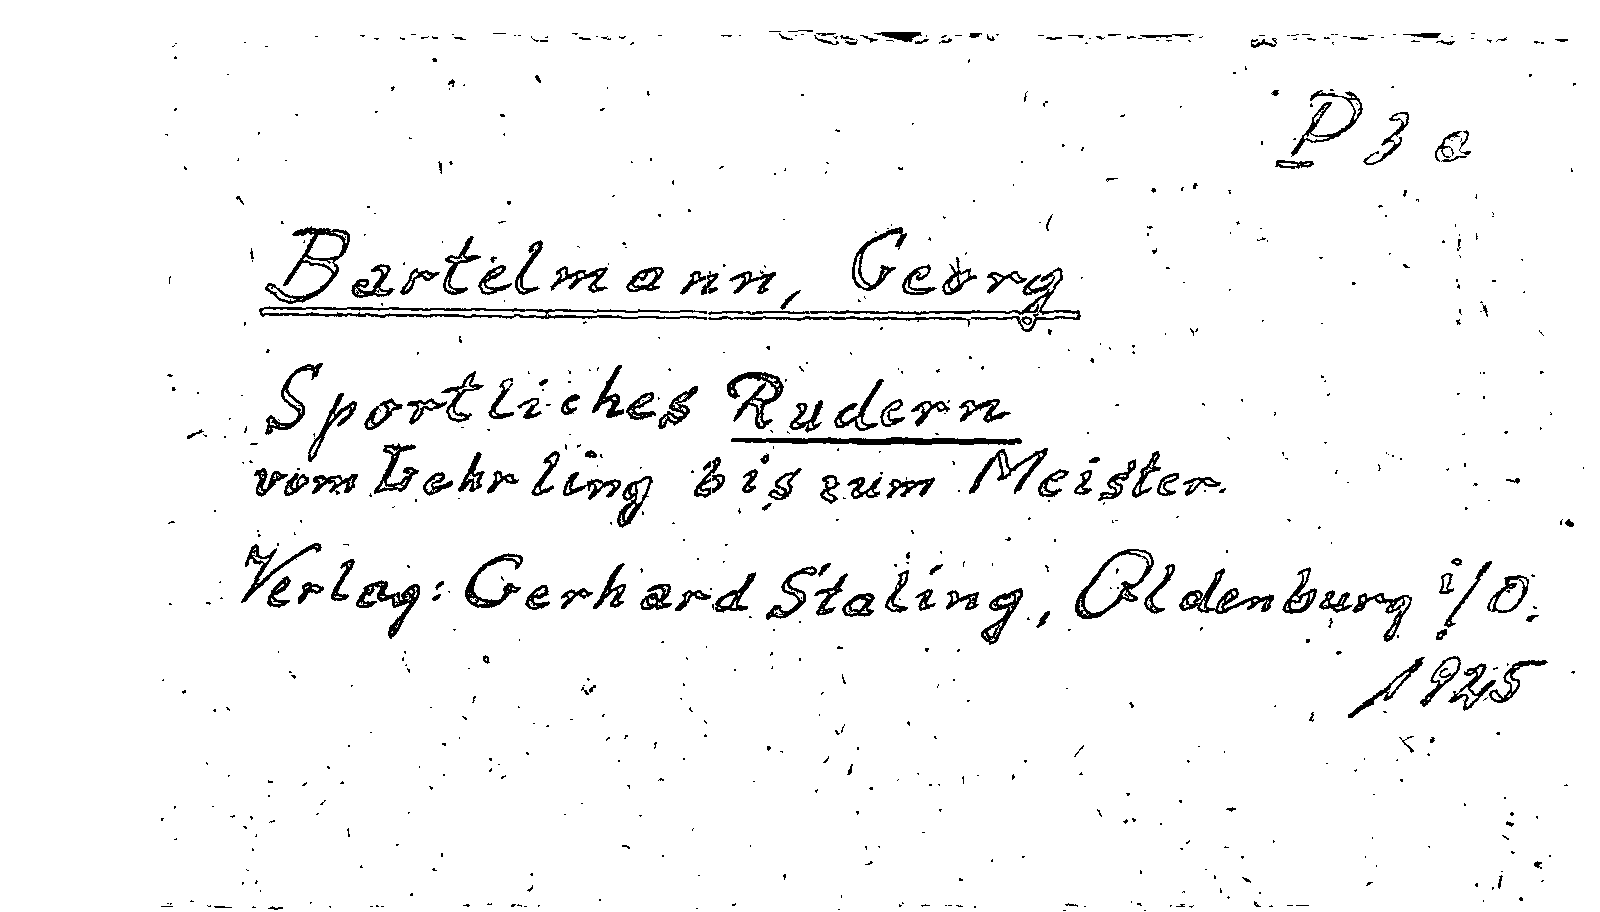 P 3 a
Bartelmann, Georg
Sportliches Rudern
vom Lehrling bis zum Meister.
Verlag: Gerhard Staling, Oldenburg i/O.
1925